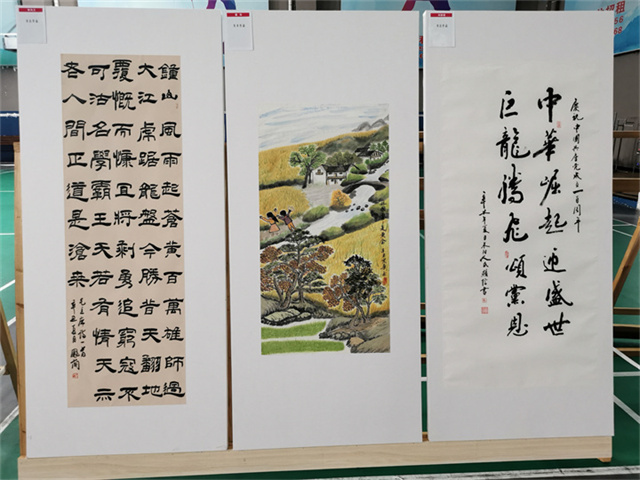 鐘山風雨起蒼黄百萬雄師過
大江虎踞龍盤今勝昔天翻地
覆慨而慷宜將剩勇追窮寇不
可沽名學霸王天若有情天亦
老人間正道是滄桑
毛主席詩一首
辛丑夏月
慶祝中國共產党成立一百周年
中華崛起迎盛世
巨龍騰飛頌黨恩
辛丑年夏月